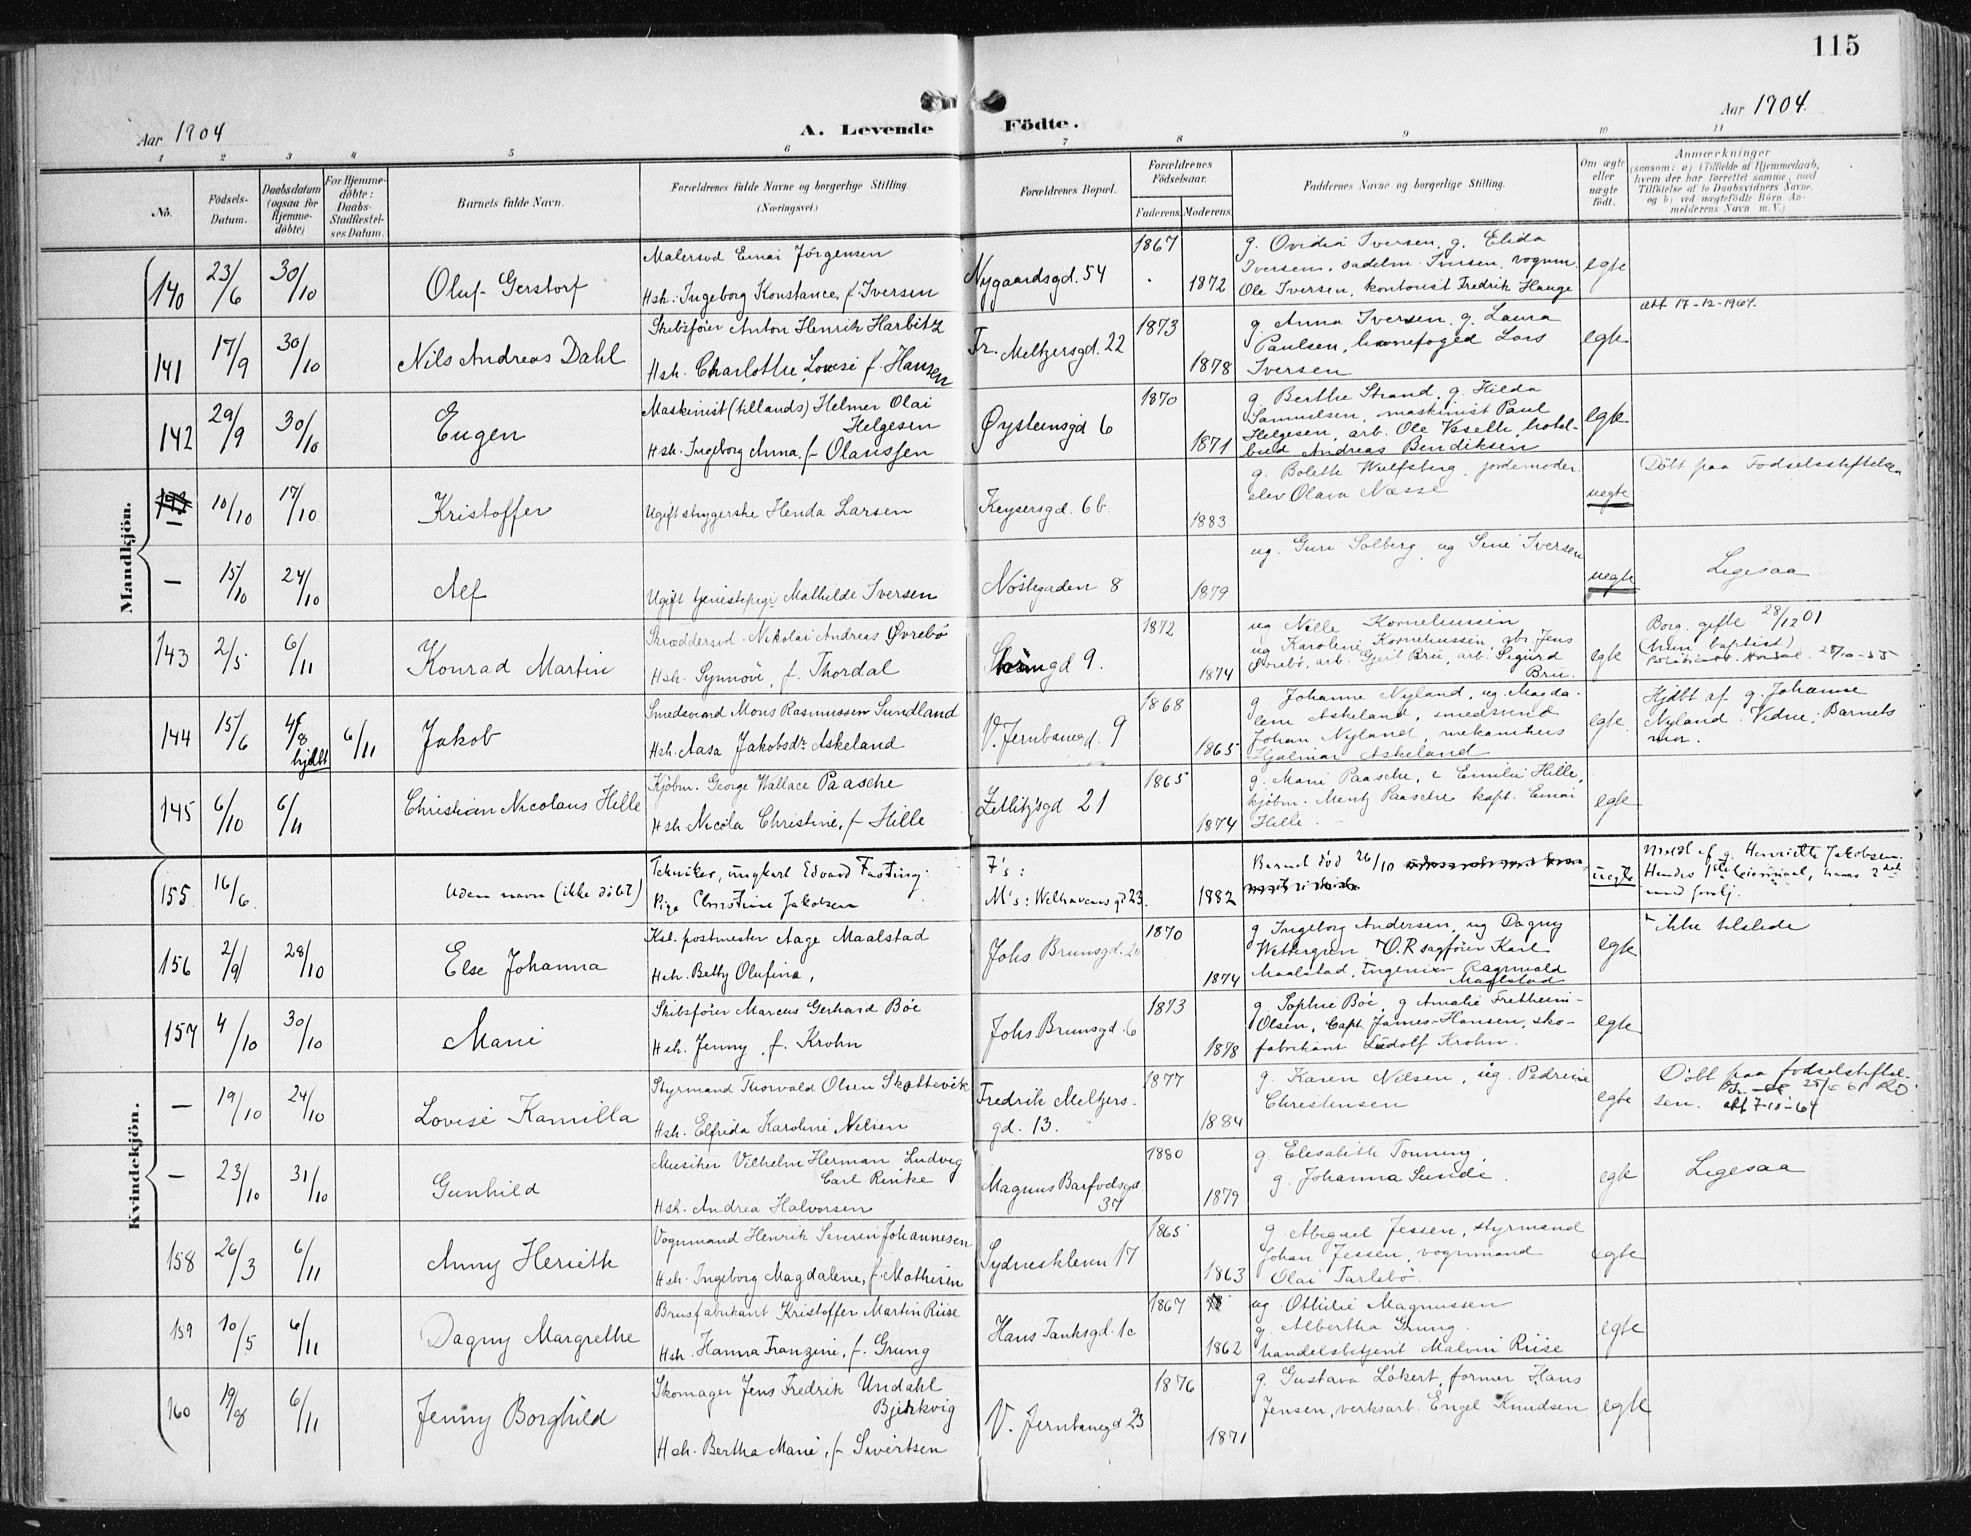 115
Aar 1904
A. Levende Födte.
Aar 1904.
1 2 3 4 5 6 7 8 9 10 11
No.
Födsels-Datum.
Daabsdatum (ogsaa for Hjemme-döbte)
For Hjemme-döbte: Daabs-Stadfæstel-ses Datum.
Barnets fulde Navn.
Forældrenes fulde Navne og borgerlige Stilling
(Næringsvei.)
Forældrenes Bopæl.
Forældrenes Födselsaar.
Faderens. Moderens.
Faddernes Navne og borgerlige Stilling.
Om ægte eller uægte födt.
Anmærkninger
(saasom: a) i Tilfælde af Hjemmedaab, hvem der har forrettet samme, med Tilföielse af to Daabsvidners Navne, og b) ved uægtefödte Börn An-melderens Navn m. V.)
Mandkjön.
140 23/6 30/10 Oluf Gerstorf
Malersvd Einai Jörgensen
Hsh. Ingeborg Konstance, f. Iversen
Nygaardsgd. 54
1867
1872
g. Ovidia Iversen, g. Elida
Iversen, sadelm. Iversen, vognm.
Ole Iversen, kontorist Fredrik Hauge
egte
141 17/9 30/10 Nils Andreas Dahl
Skibsförer Anton Henrik Harbitz
Hsh. Charlothe Lovise f. Hansen
Fr. Meltzersgd. 22
1873
1878
g. Anna Iversen, g. Laura
Paulsen, havnefoged Lars
Iversen
egte
att 17-12-1964.
142 29/9 30/10 Eugen
Maskinist (tillands) Helmer Olai
Helgesen
Hsh. Ingeborg Anna, f. Olaussen
Øysteinsgd 6
1870
1871
g. Berthe Strand, g. Hilda
Samuelsen, maskinist Paul
Helgesen, arb. Ole Veselle, hotel-
bud Andreas Bendiksen
egte
— 10/10 17/10 Kristoffer
Ugift strygerske Henda Larsen
Keysersgd. 6 b.
1883
g. Bolette Wulfsberg, jordemoder
elev Olava Næsse
uegte
Döbt paa Fodselsstiftelsen
— 15/10 24/10 Alf
Ugift tjenestepige Mathilde Iversen
Nöstegaden 8
1879
ug. Guri Solberg, ug Sine Iversen
uegte
Ligesaa
143 2/5 6/11 Konrad Martin
Skræddersvd. Nikolai Andreas Øvrebö
Hsh. Synnöve, f. Thordal
1872
1874
ug Nille Korneliussen
ug Karoline Korneliussen, gbr. Jens
Övrebö, arb. Gjert Bru, arb. Sigurd
Bru.
egte
Borg. gifte 28/12 01
(hun baptist)
144 15/6 4/8 hjdbt 6/11 Jakob
Smedsvend Mons Rasmussen Sundland
Hsh. Aasa Jakobsdr. Askeland
V. Jernbanegd. 9
1868
1865
g. Johanne Nyland, ug. Magda-
lene Askeland, smedsvend
Johan Nyland, mekanikus
Hjalmar Askeland
egte.
Hjdbt af g. Johanne
Nyland. Vidne: Barnets
mor.
145 6/10 6/11 Christian Nicolaus Hille
Kjöbm. George Wallace Paasche
Hsh Nicola Christine, f. Hille
Zetlitzsgd 21
1865
1874
g. Marie Paasche, e Emilie Hille,
kjöbm. Mentz Paasche kapt. Einai
Hille.
egte
Kvindekjön.
155 16/6 Uden navn (ikke döbt)
Tekniker, ungkarl Edvard Fasting.
Pige Christine Jakobsen
F's:
M's: Welhavens gd 23.
1882
Barnet död 26/10
uegte
Meldt af g. Henriette Jakobsen.
Hendes 1ste leiermaal, hans 2det
med forlj.
156 2/9 28/10 Else Johanna
Kst. postmester Aage Maalstad
Hsh. Betty Olufina,
Johs Brunsgd. 20
1870
1874
g Ingeborg Andersen, ug Dagny
Wettergren O.R sagförer Karl
Maalstad, ingeniör Ragnvald
Maalstad
egte
ikke tilstede
157 4/10 30/10 Marie
Skibsförer Marcus Gerhard Böe
Hsh. Jenny, f. Krohn
Johs Brunsgd. 6
1873
1878
g. Sophie Böe, g Amalie Fretheim-
Olsen, Capt. James-Hansen, sko-
fabrikant Ludolf Krohn.
egte
— 19/10 24/10 Lovise Kamilla
Styrmand Thorvald Olsen Skottevik
Hsh. Elfrida Karoline Nilsen
Fredrik Meltzers-
gd. 13.
1877
1884
g. Karen Nilsen, ug. Pedrine
Christensen
egte
Döbt paa fodselstiftel-
sen.
att 7-10-64
— 23/10 31/10 Gunhild
Musiker Vilhelm Herman Ludvig
Carl Rinke
Hsh. Andrea Halvorsen
Magnus Barfodsgd.
37
1880
1879
g. Elisabeth Tonning,
g. Johanna Sunde.
egte
Ligesaa
158 26/3 6/11 Anny Heriette
Vognmand Henrik Severin Johannesen
Hsh. Ingeborg Magdalene, f. Mathisen
Sydneskleven 17
1865
1863
g. Abigael Jessen, styrmand
Johan Jessen, vognmand
Olai Tarlebö.
egte
159 10/5 6/11 Dagny Margrethe
Brusfabrikant Kristoffer Martin Riise
Hsh. Hanna Franzine, f. Grung
Hans Tanksgd. 1c
1867
1862
ug Othilie Magnussen
g. Albertha Grung.
handelsbetjent Malvin Riise
egte
160 19/8 6/11 Jenny Borghild
Skomager Jens Fredrik Undahl
Bjerkvig
Hsh. Bertha Marie, f. Sivertsen
V. Jernbanegd 23
1876
1871
g. Gustava Lökert, former Hans
Jensen, verksarb. Engel Knudsen
egte